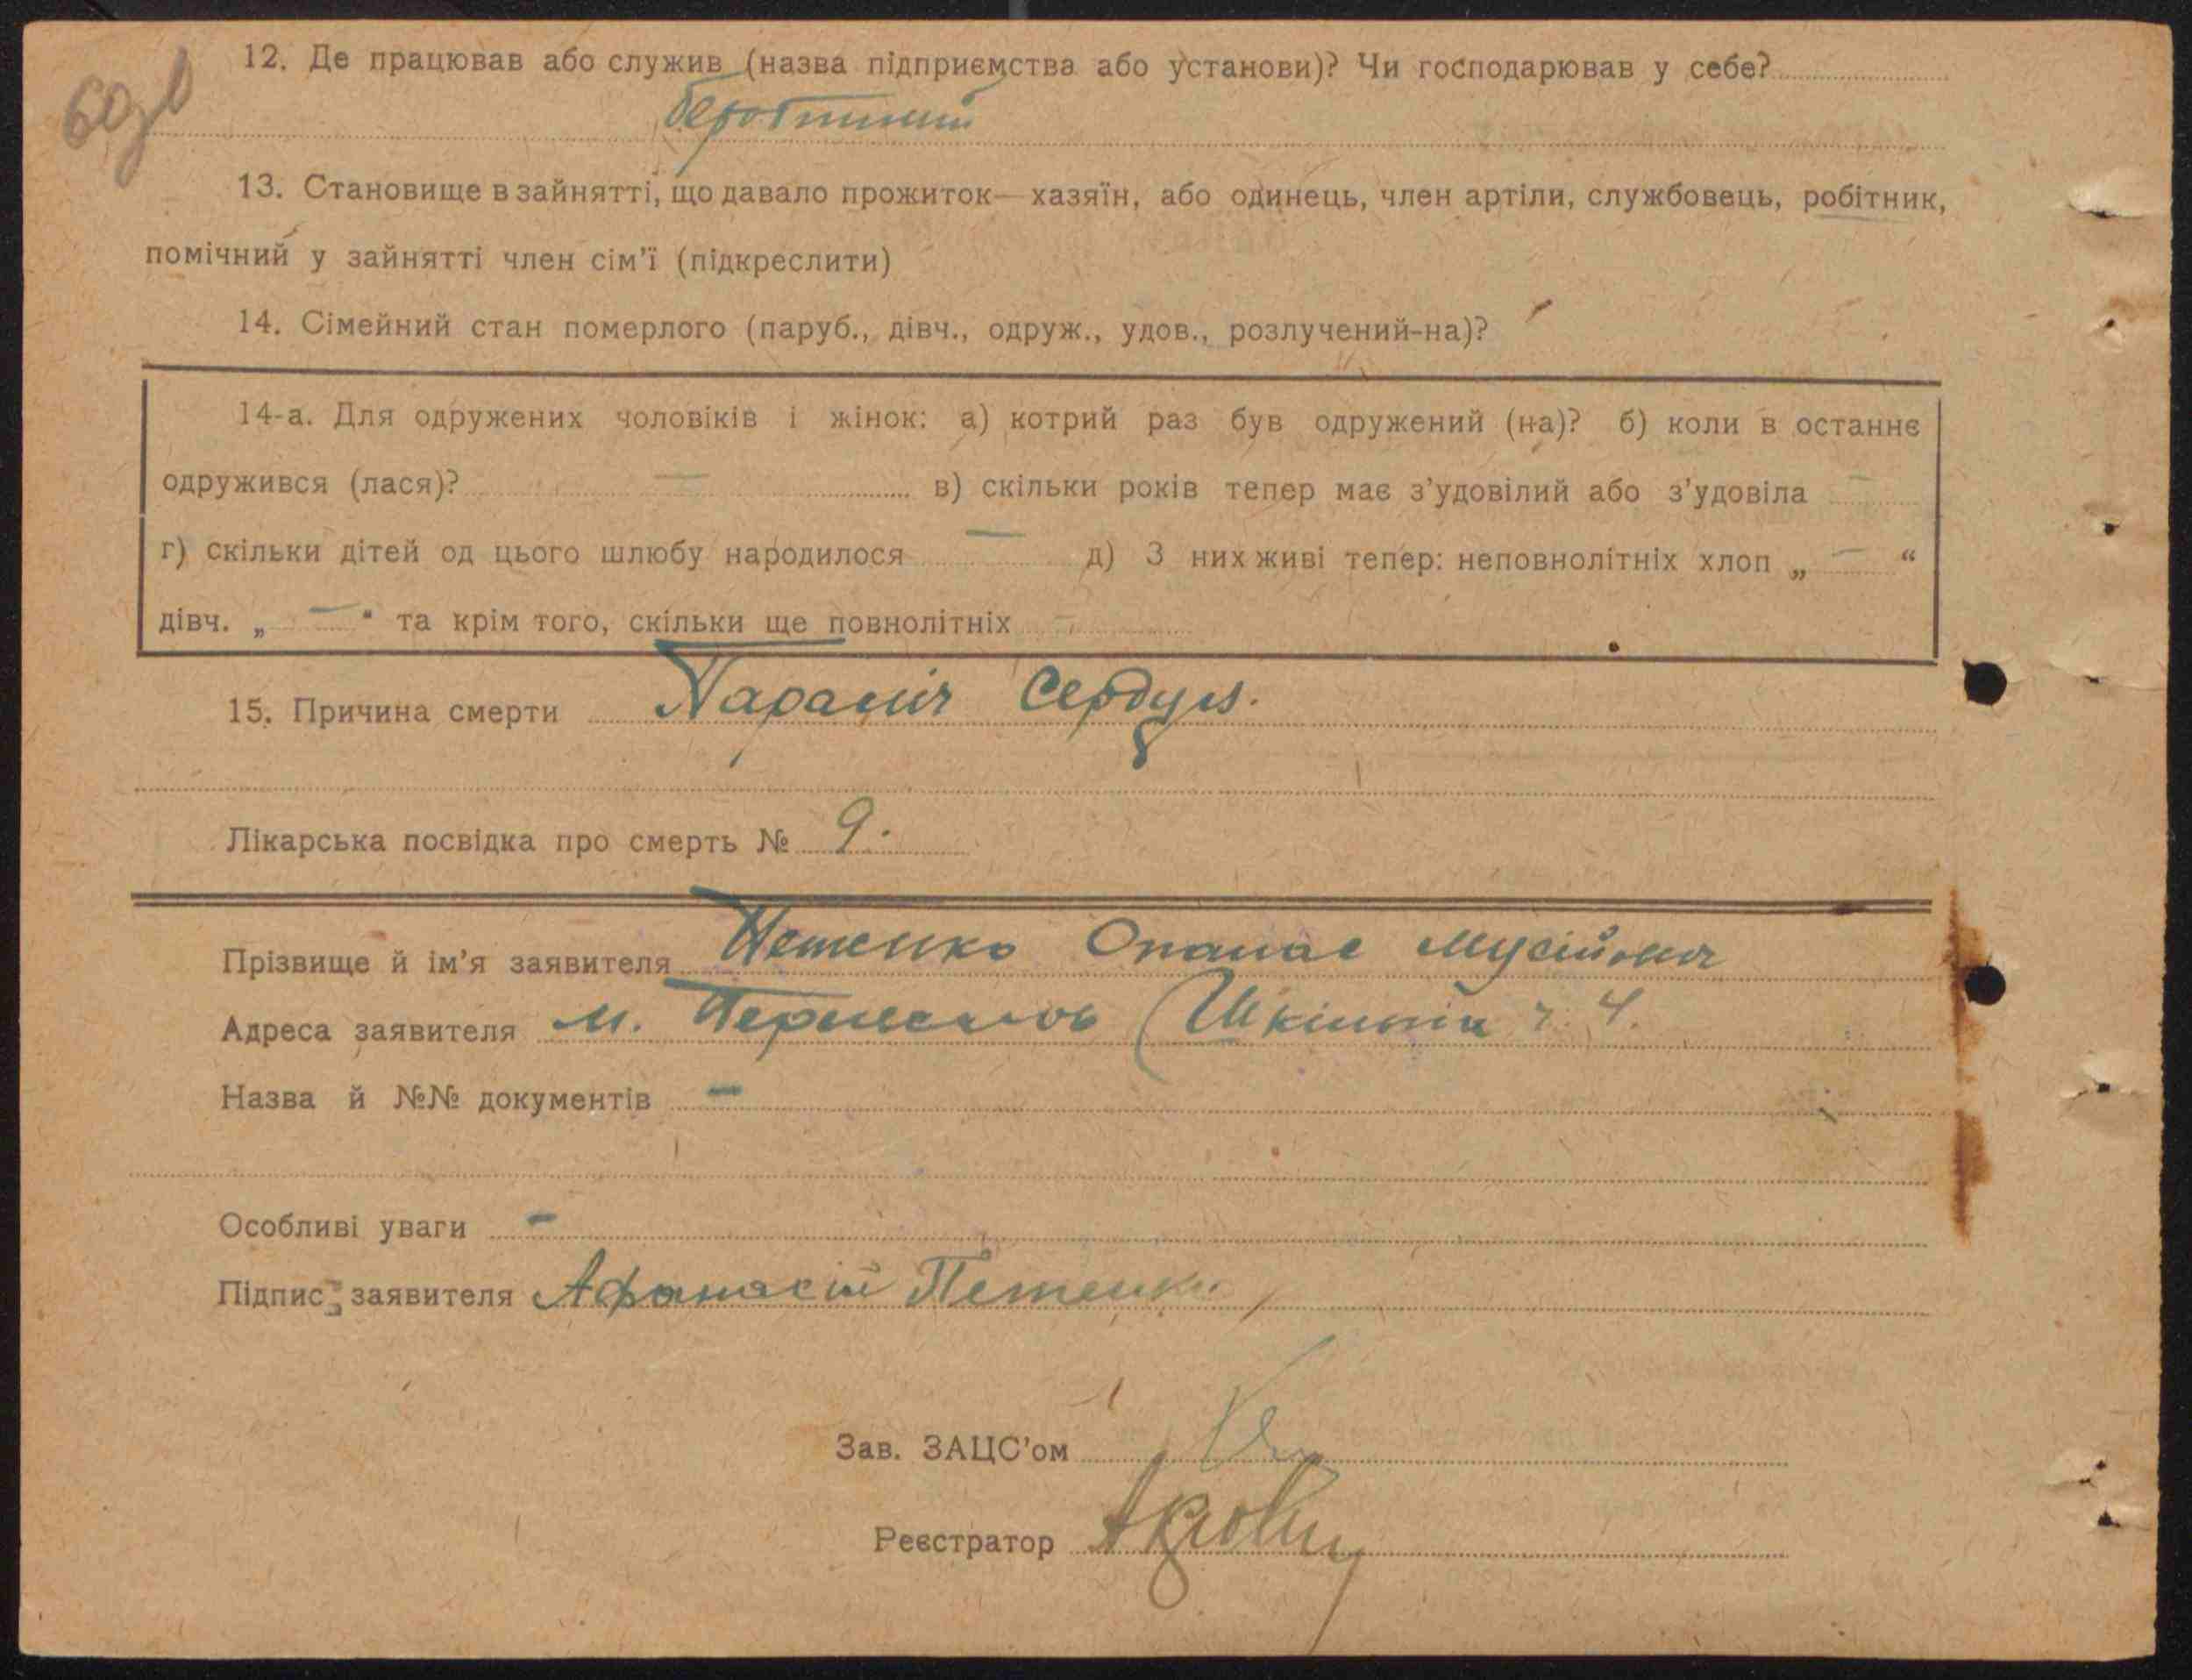 60зв
12. Де працював або служив (назва підприємства або установи)? Чи господарював у себе?
13. Становище в зайнятті, що давало прожиток — хазяїн, або одинець, член артіли, службовець, робітник,
помічний у зайнятті член сім'ї (підкреслити)
14. Сімейний стан померлого (паруб., дівч., одруж., удов., розлучений-на)?
14-а. Для одружених чоловіків і жінок: а) котрий раз був одружений (на)? б) коли в останнє
одружився (лася)? — в) скільки років тепер має з'удовілий або з'удовіла —
г) скільки дітей од цього шлюбу народилося — д) З них живі тепер: неповнолітніх хлоп „ — “
дівч. „ — “ та крім того, скільки ще повнолітніх —
15. Причина смерти Параліч Сердця.
Лікарська посвідка про смерть № 9.
Прізвище й ім'я заявителя Петенко Опанас Мусійович
Адреса заявителя м. Шкільній ч. 4.
Назва й №№ документів —
Особливі уваги —
Підпис заявителя Афанасій Петенко
Зав. ЗАЦС'ом
Реєстратор